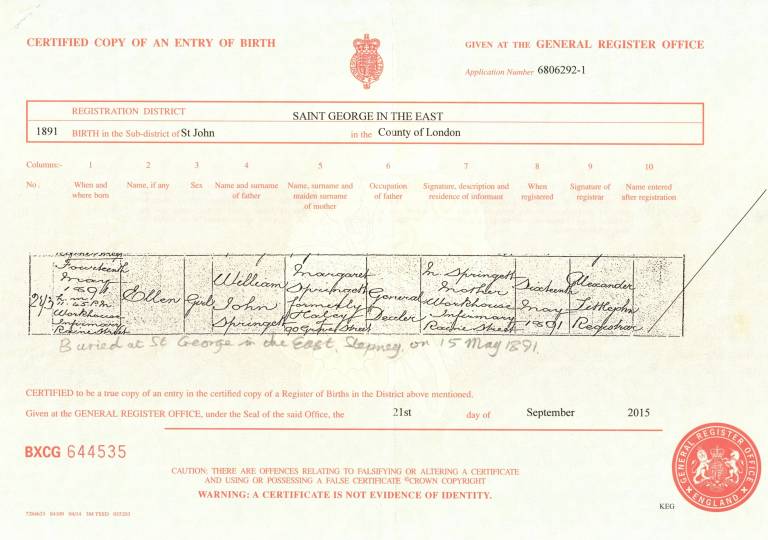 CERTIFIED COPY OF AN ENTRY OF BIRTH
GIVEN AT THE GENERAL REGISTER OFFICE
Application Number 6806292-1
REGISTRATION DISTRICT
SAINT GEORGE IN THE EAST
1891 BIRTH in the Sub-district of St John in the County of London
Columns:- 1 2 3 4 5 6 7 8 9 10
No. When and where born
Name, if any
Sex
Name and surname of father
Name, surname and maiden surname of mother
Occupation of father
Signature, description and residence of informant
When registered
Signature of registrar
Name entered after registration
243
Fourteenth
May
1891
Workhouse
Infirmary
Raine Street
Ellen
Girl
William
John
Springett
Margaret
Springett
formerly
General
Dealer
M Springett
Mother
Workhouse
Infirmary
Raine Street
Sixteenth
May
1891
Alexander
Littlejohn
Registrar
Buried at St George in the East Stepney, on 15 May 1891.
CERTIFIED to be a true copy of an entry in the certified copy of a Register of Births in the District above mentioned.
Given at the GENERAL REGISTER OFFICE, under the Seal of the said Office, the 21st day of September 2015
BXCG 644535
CAUTION: THERE ARE OFFENCES RELATING TO FALSIFYING OR ALTERING A CERTIFICATE
AND USING OR POSSESSING A FALSE CERTIFICATE ©CROWN COPYRIGHT
WARNING: A CERTIFICATE IS NOT EVIDENCE OF IDENTITY.
GENERAL REGISTER OFFICE
ENGLAND
KEG